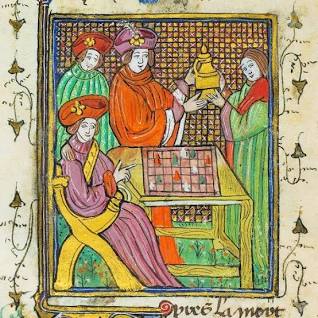 Apres la mort